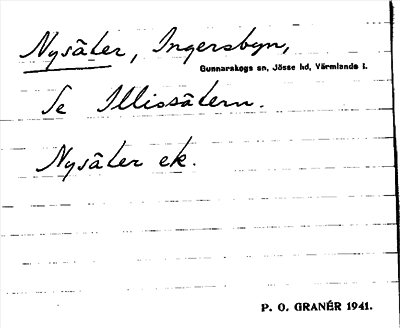 Nysäter, Ingersbyn,
Gunnarskogs sn, Jösse hd, Värmlands l.
Se Illissätern.
Nysäter ek.
P. O. GRANÉR 1941.